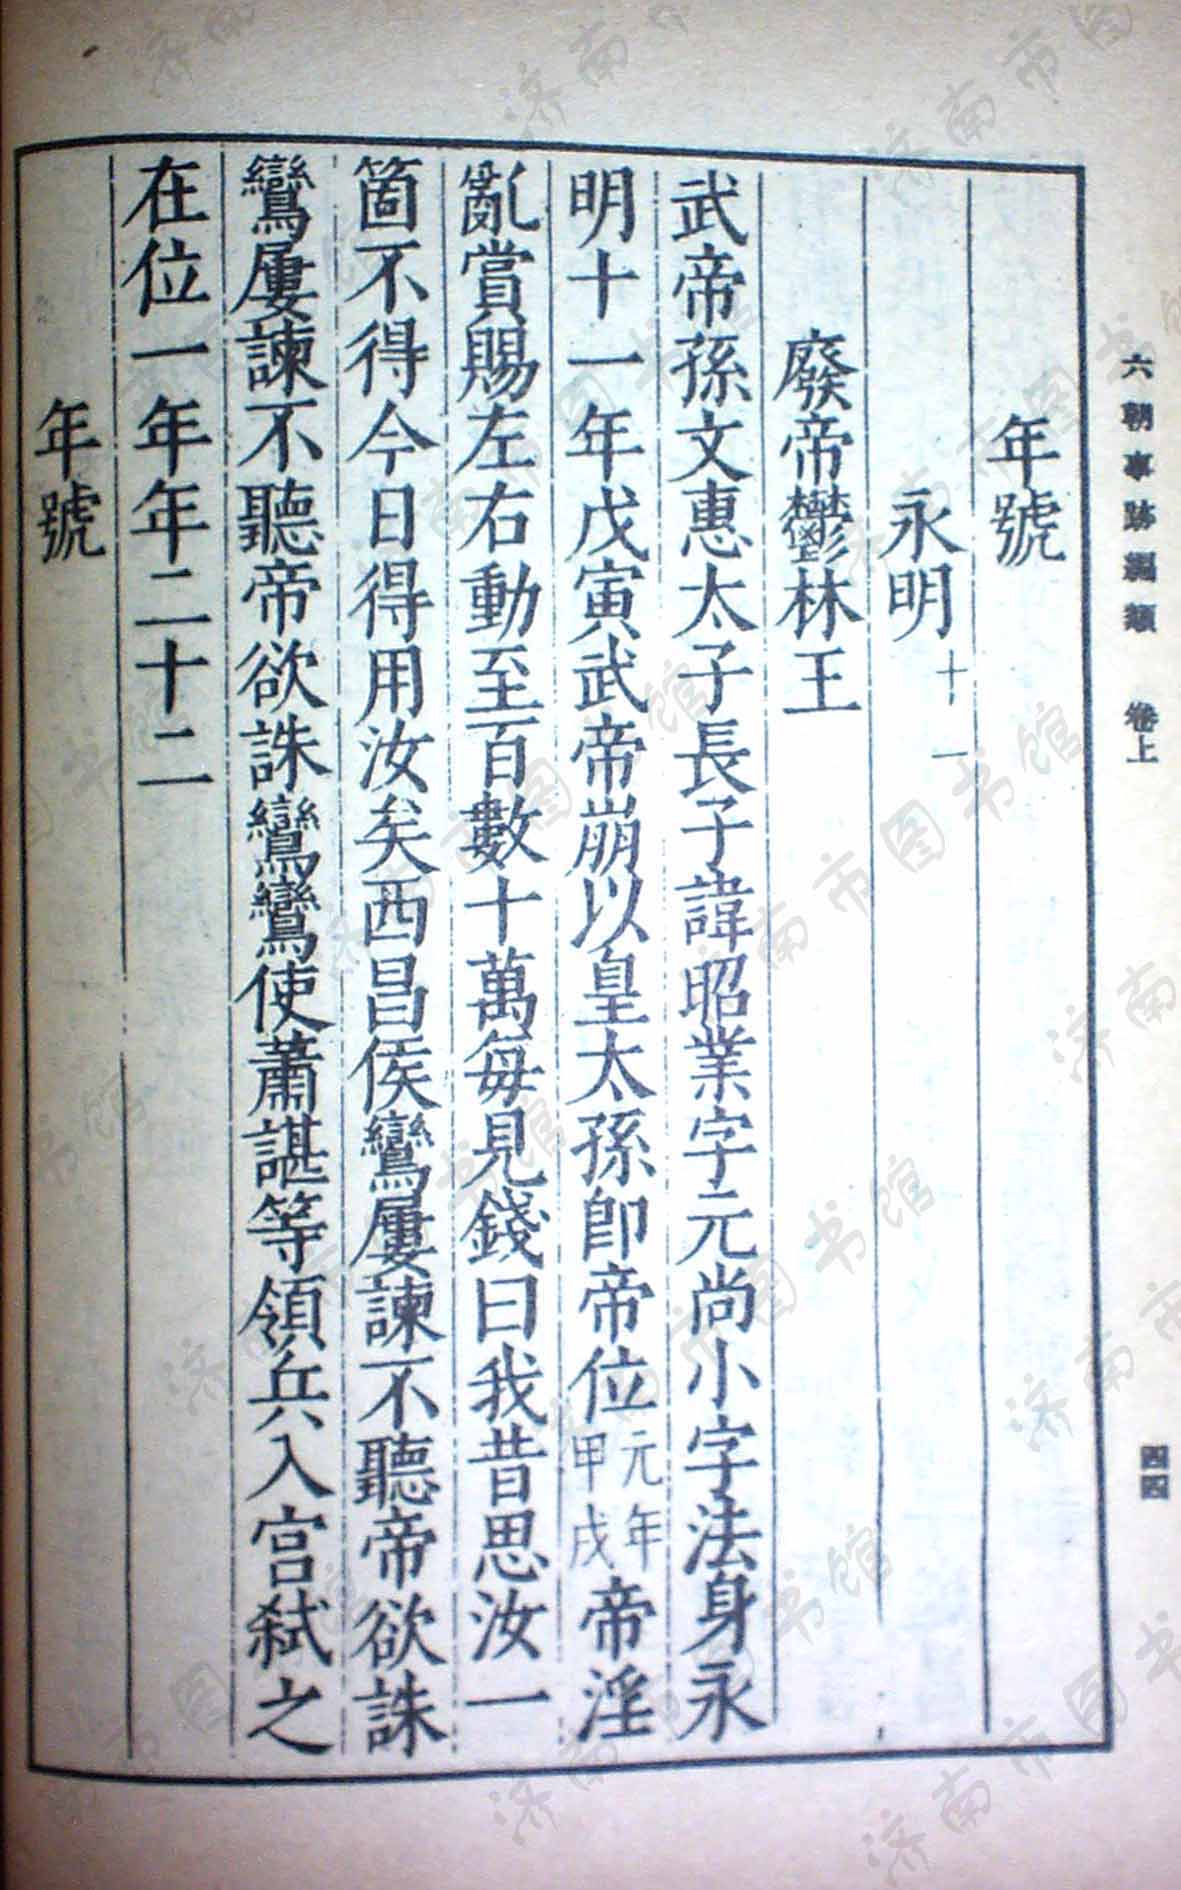 六朝事跡編類 卷上 四四
年號
永明十一
廢帝鬱林王
武帝孫文惠太子長子諱昭業字元尚小字法身永
明十一年戊寅武帝崩以皇太孫即帝位元年甲戌帝淫
亂賞賜左右動至百數十萬每見錢曰我昔思汝一
箇不得今日得用汝矣西昌侯鸞屢諫不聽帝欲誅
鸞屢諫不聽帝欲誅鸞鸞使蕭諶等領兵入宮弑之
在位一年年二十二
年號
济南市图书馆